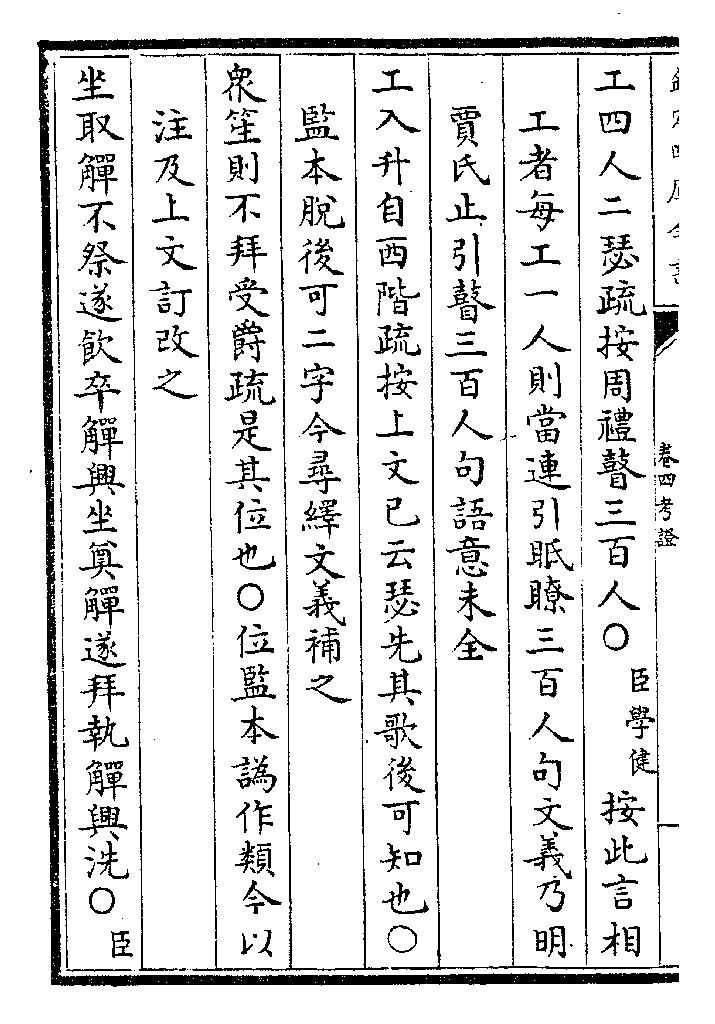 欽定四庫全書
卷四考證
工四人二瑟疏按周禮瞽三百人○臣學健按此言相
工者每工一人則當連引眡瞭三百人句文義乃明
賈氏止引瞽三百人句語意未全
工入升自西階疏按上文已云瑟先其歌後可知也○
監本脫後可二字今尋繹文義補之
衆笙則不拜受爵疏是其位也○位監本譌作類今以
注及上文訂改之
坐取觶不祭遂飲卒觶興坐奠觶遂拜執觶興洗○臣